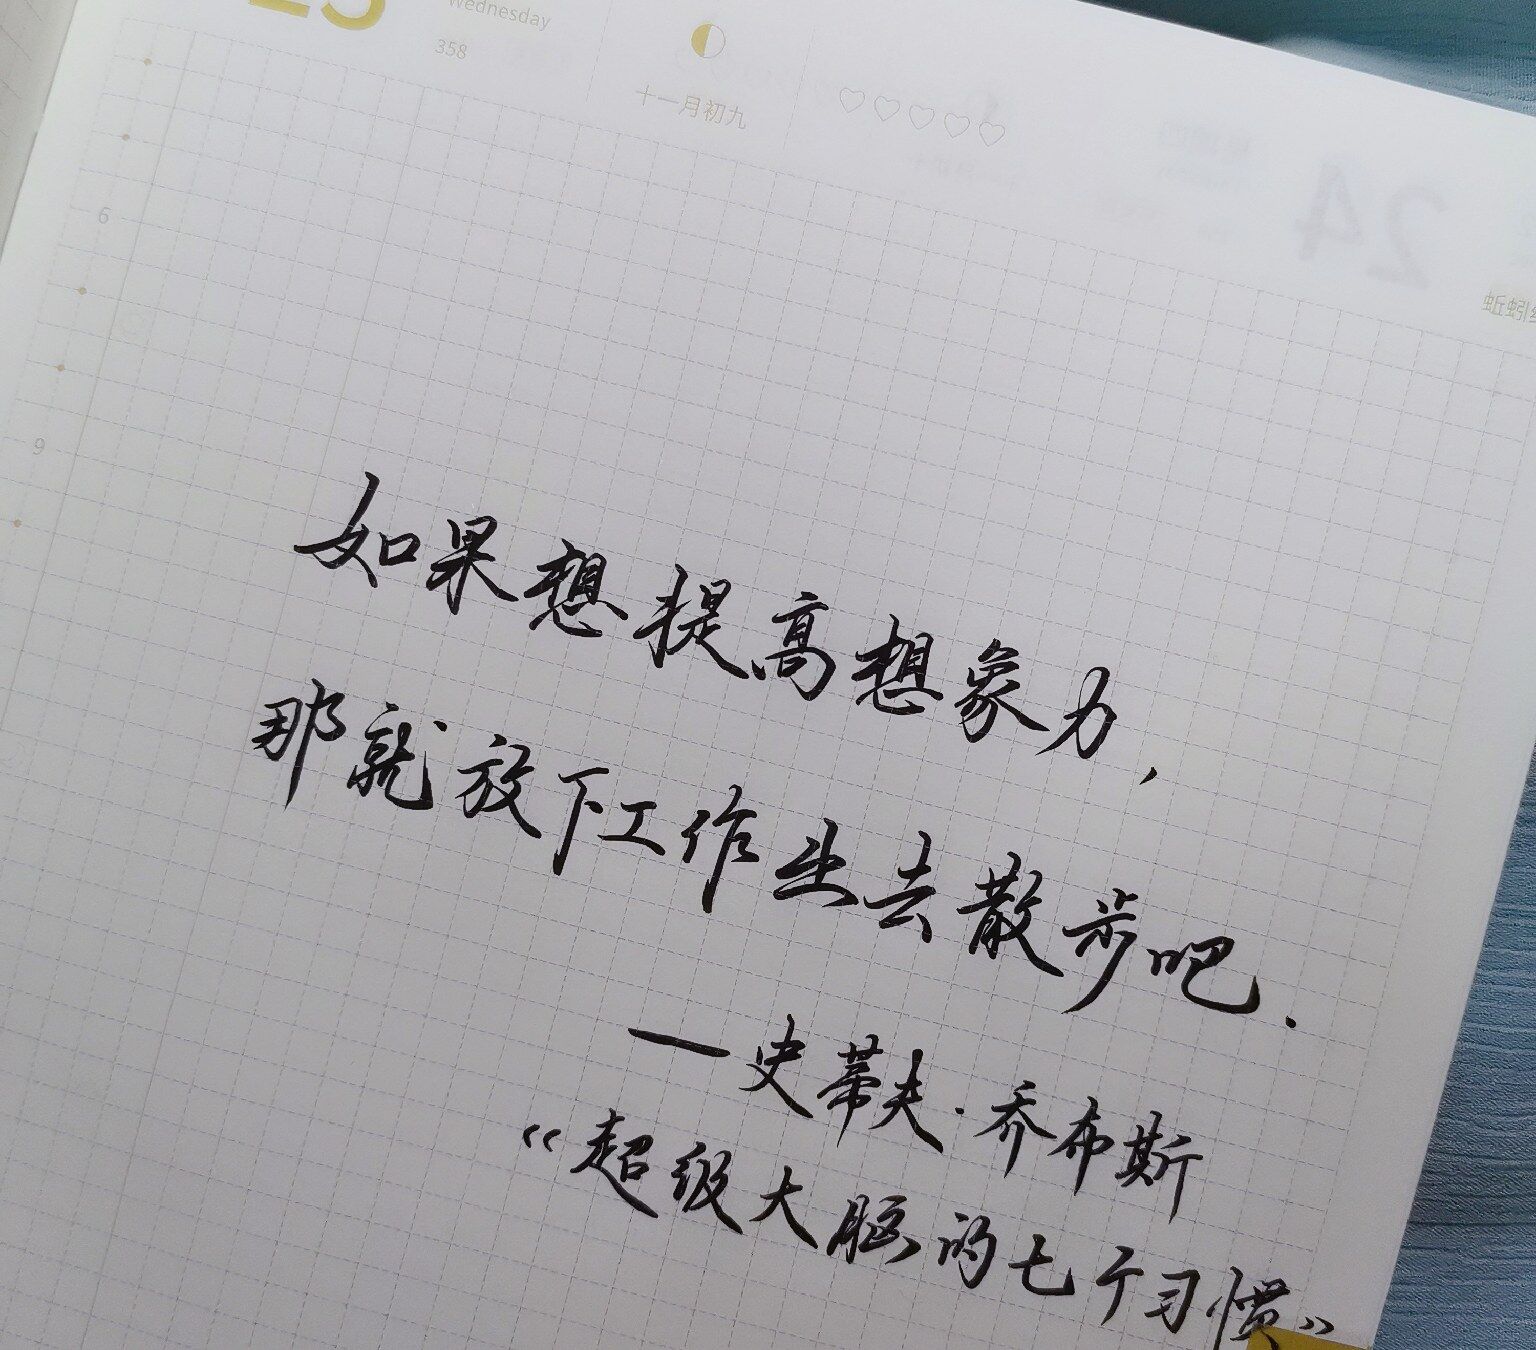 Wednesday
358
十一月初九
24
6
9
如果想提高想象力，
那就放下工作出去散步吧.
—史蒂夫·乔布斯
《超级大脑的七个习惯》